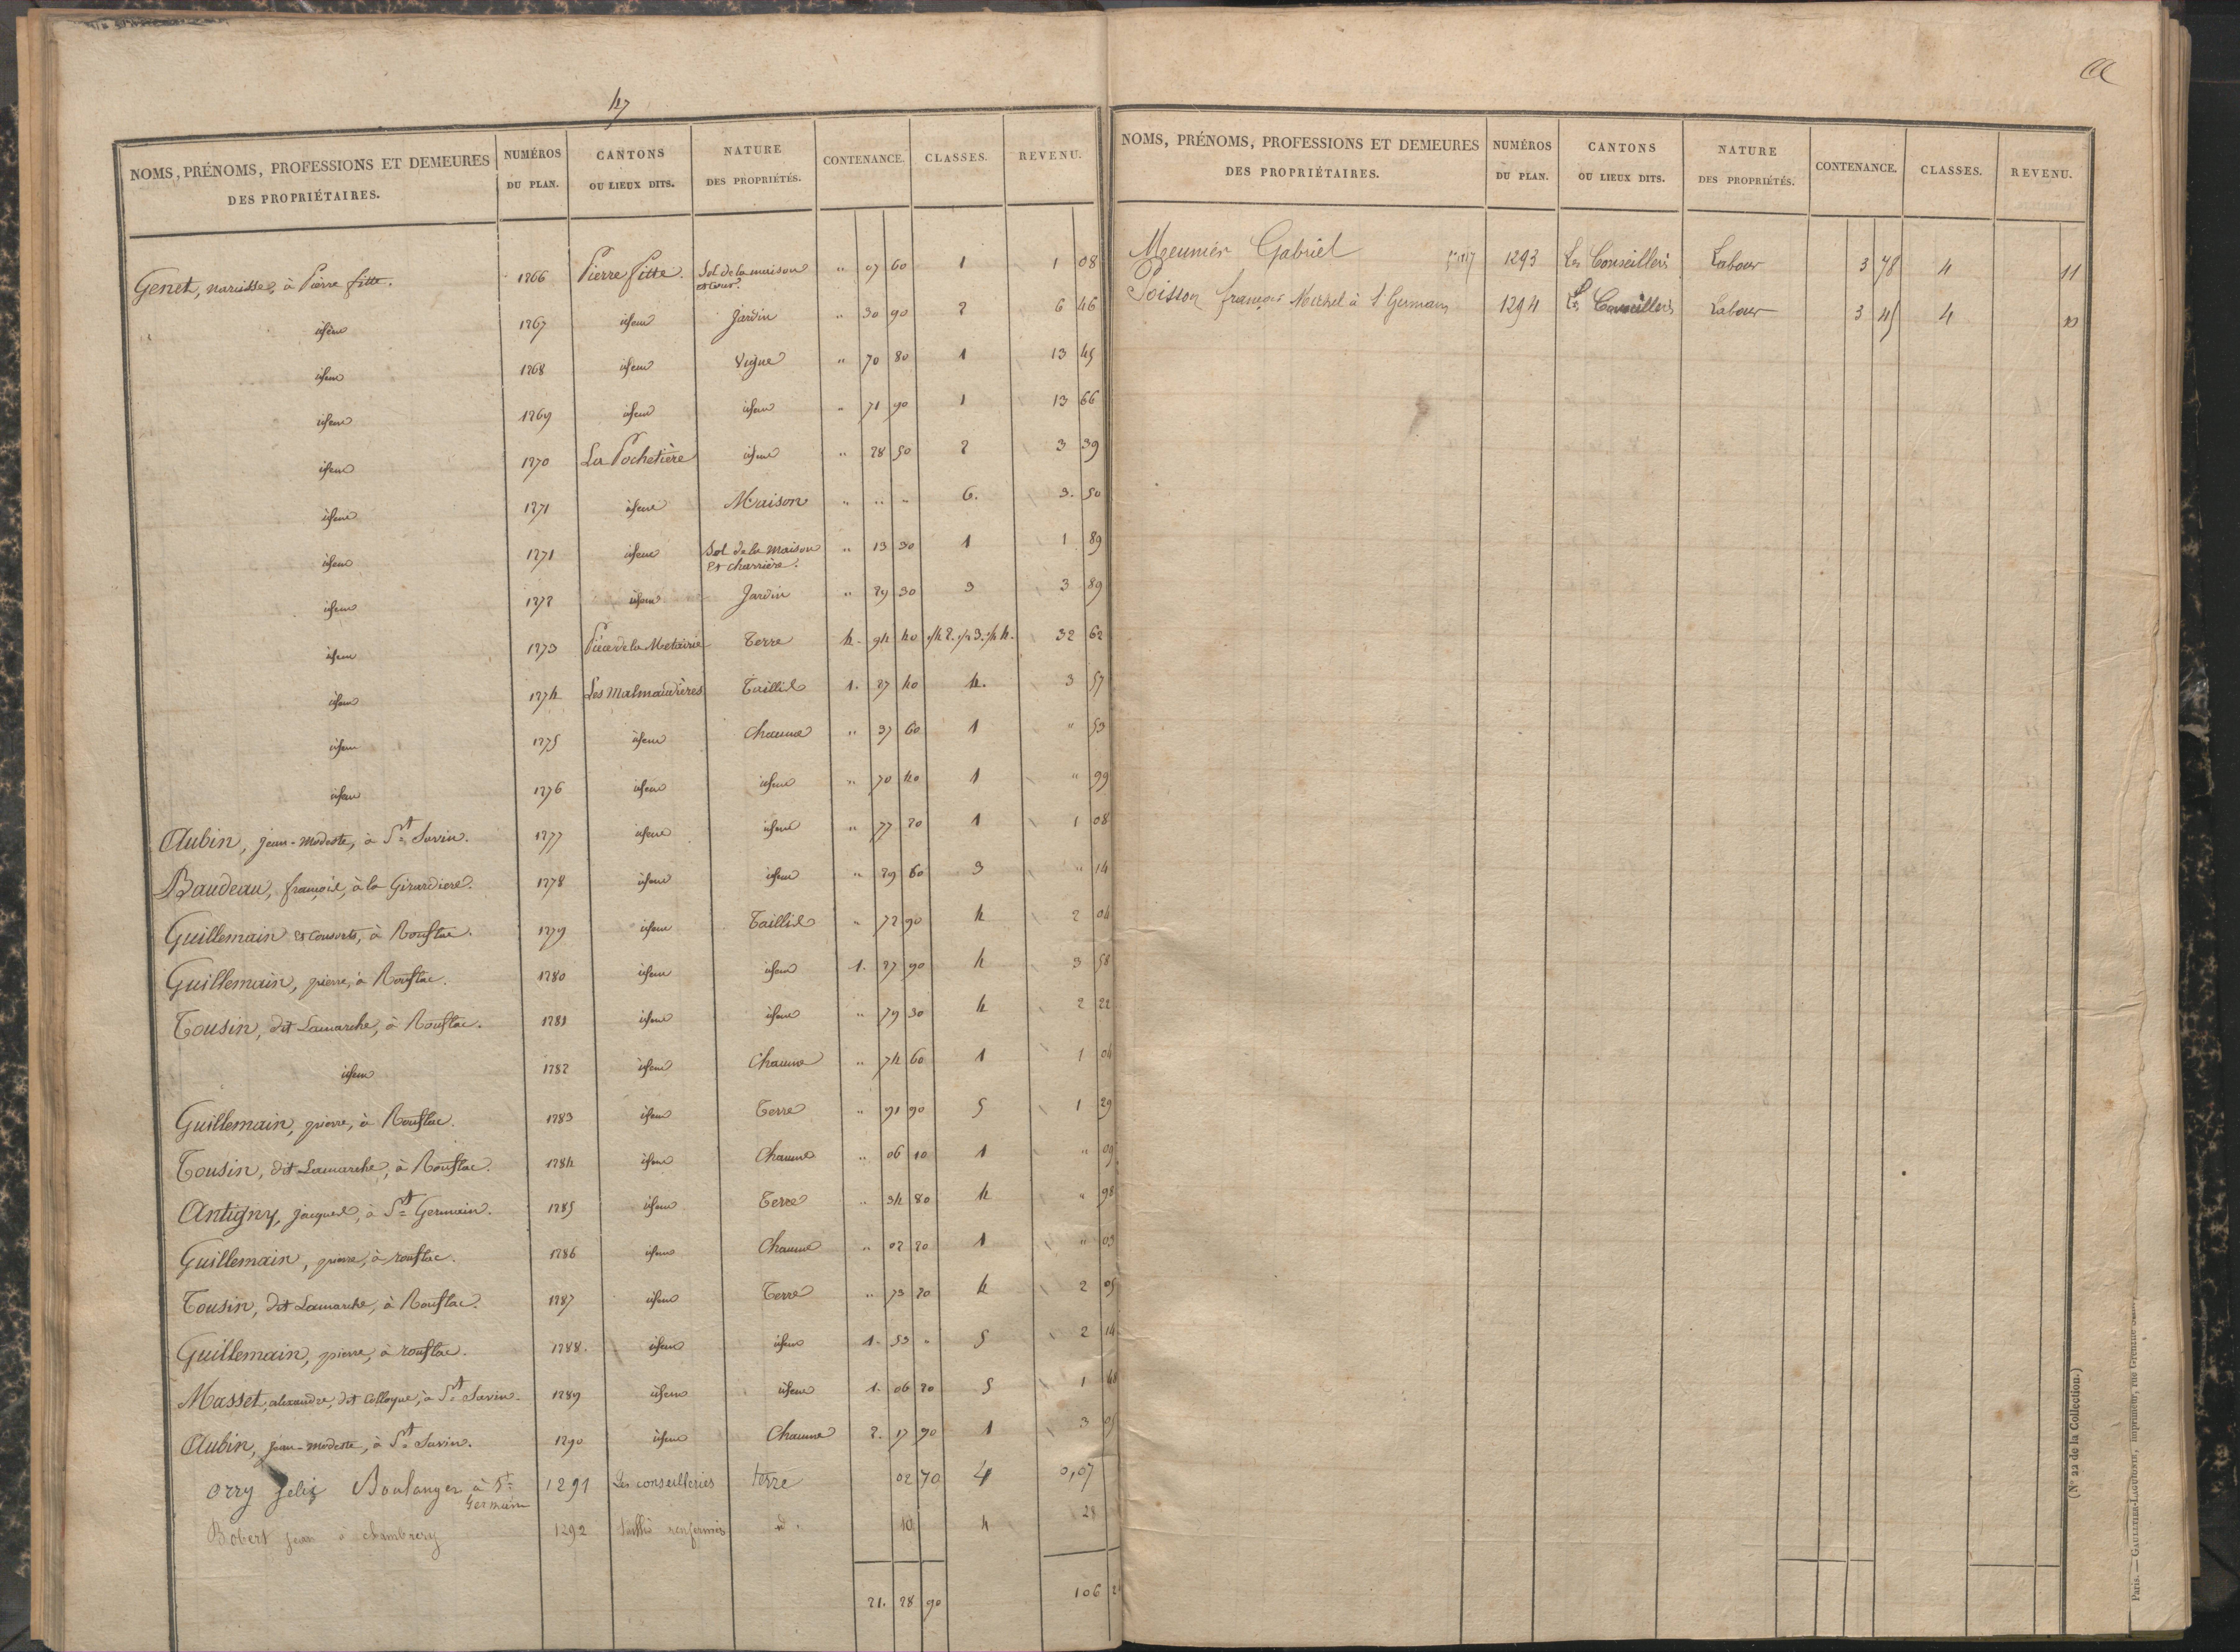 47
NOMS, PRÉNOMS, PROFESSIONS ET DEMEURES DES PROPRIÉTAIRES. NUMÉROS DU PLAN. CANTONS OU LIEUX DITS. NATURE DES PROPRIÉTÉS. CONTENANCE. CLASSES. REVENU.
Genet, narcisse, à Pierre fitte. 1266 Pierre fitte. Sol de la maison et cour. " 07 60 1 1 08
idem 1267 idem Jardin " 30 90 2 6 46
idem 1268 idem Vigne " 70 80 1 13 45
idem 1269 idem idem " 71 90 1 13 66
idem 1270 La Pochetière idem " 28 50 2 3 39
idem 1271 idem Maison " " " 6. 3. 50
idem 1271 idem Sol de la maison et charrière. " 13 30 1 1 89
idem 1272 idem Jardin " 29 30 3 3 89
idem 1273 Pièce de la Metairie Terre 4. 94 40 32 62
idem 1274 Les Malmaudières Taillis 1. 27 40 4. 3 57
idem 1275 idem Chaume " 37 60 1 " 53
idem 1276 idem idem " 70 40 1 " 99
Aubin, jean-modeste, à St Savin. 1277 idem idem " 77 20 1 1 08
Baudeau, françois, à la Girardiere. 1278 idem idem " 29 60 3 " 14
Guillemain et consorts, à Rouflac. 1279 idem Taillis " 72 90 4 2 04
Guillemain, pierre, à Rouflac. 1280 idem idem 1. 27 90 4 3 58
Tousin, dit Lamarche, à Rouflac. 1281 idem idem " 79 30 4 2 22
idem 1282 idem Chaume " 74 60 1 1 04
Guillemain, pierre, à Rouflac. 1283 idem Terre " 91 90 5 1 29
Tousin, dit Lamarche, à Rouflac. 1284 idem Chaume " 06 10 1 " 09
Antigny, jacques, à St Germain. 1285 idem Terre " 34 80 4 " 98
Guillemain, pierre, à rouflac. 1286 idem Chaume " 02 20 1 " 03
Tousin, dit Lamarche, à Rouflac. 1287 idem Terre " 73 20 4 2 05
Guillemain, pierre, à rouflac. 1288. idem idem 1. 53 " 5 2 14
Masset, alexandre, dit Colloque, à St Savin. 1289 idem idem 1. 06 20 5 1 48
Aubin, jean-modeste, à St Savin. 1290 idem Chaume 2. 17 90 1 3 05
Orry Felix Boulanger à St Germain 1291 Les conseilleries terre 02 70 4 0,07
Bobert jean à chambrery 1292 renfermis d° 10 4 28
21. 28 90 106
NOMS, PRÉNOMS, PROFESSIONS ET DEMEURES DES PROPRIÉTAIRES. NUMÉROS DU PLAN. CANTONS OU LIEUX DITS. NATURE DES PROPRIÉTÉS. CONTENANCE. CLASSES. REVENU.
Meunier Gabriel 1293 Les Conseillers Labour 3 78 4 11
Poisson françois Michel à S Germain 1294 Les Conseillers Labour 3 45 4 10
(N° 22 de la Collection.)
Paris. — GAULTIER-LAGUIONIE, imprimeur, rue Grenelle